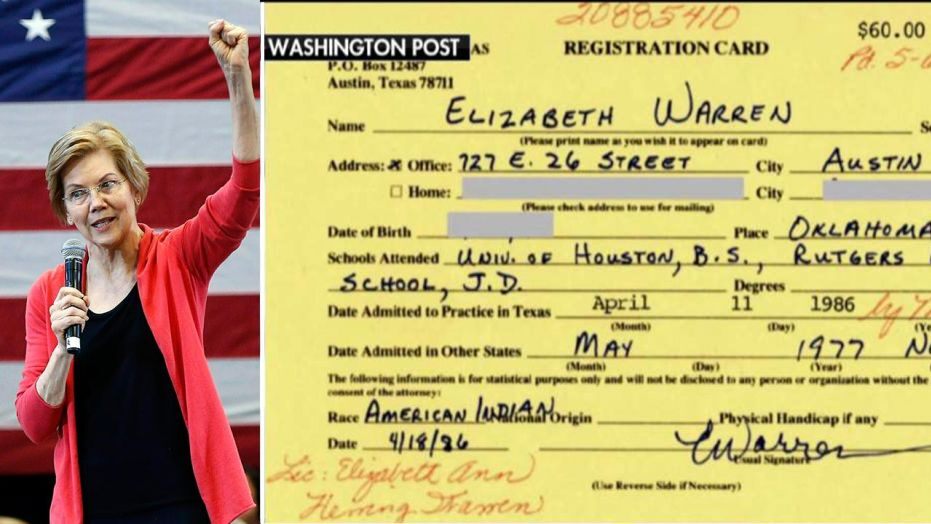 20885410
$60.00
WASHINGTON POST
AS REGISTRATION CARD
Pd. 5-
P.O. Box 12487
Austin, Texas 78711
Name ELIZABETH WARREN
(Please print name as you wish it to appear on card)
Address: x Office: 727 E. 26 STREET City AUSTIN
Home: City
(Please check address to use for mailing)
Date of Birth Place OKLAHOMA
Schools Attended UNIV. OF HOUSTON, B.S., RUTGERS
SCHOOL, J.D. Degrees
Date Admitted to Practice in Texas April 11 1986
(Month) (Day)
Date Admitted in Other States MAY 1977
(Month) (Day) (Year)
The following information is for statistical purposes only and will not be disclosed to any person or organization without the
consent of the attorney:
Race AMERICAN INDIAN National Origin Physical Handicap if any
Date 4/18/86 EWarren
Usual Signature
Lic: Elizabeth Ann
Herring Warren
(Use Reverse Side if Necessary)